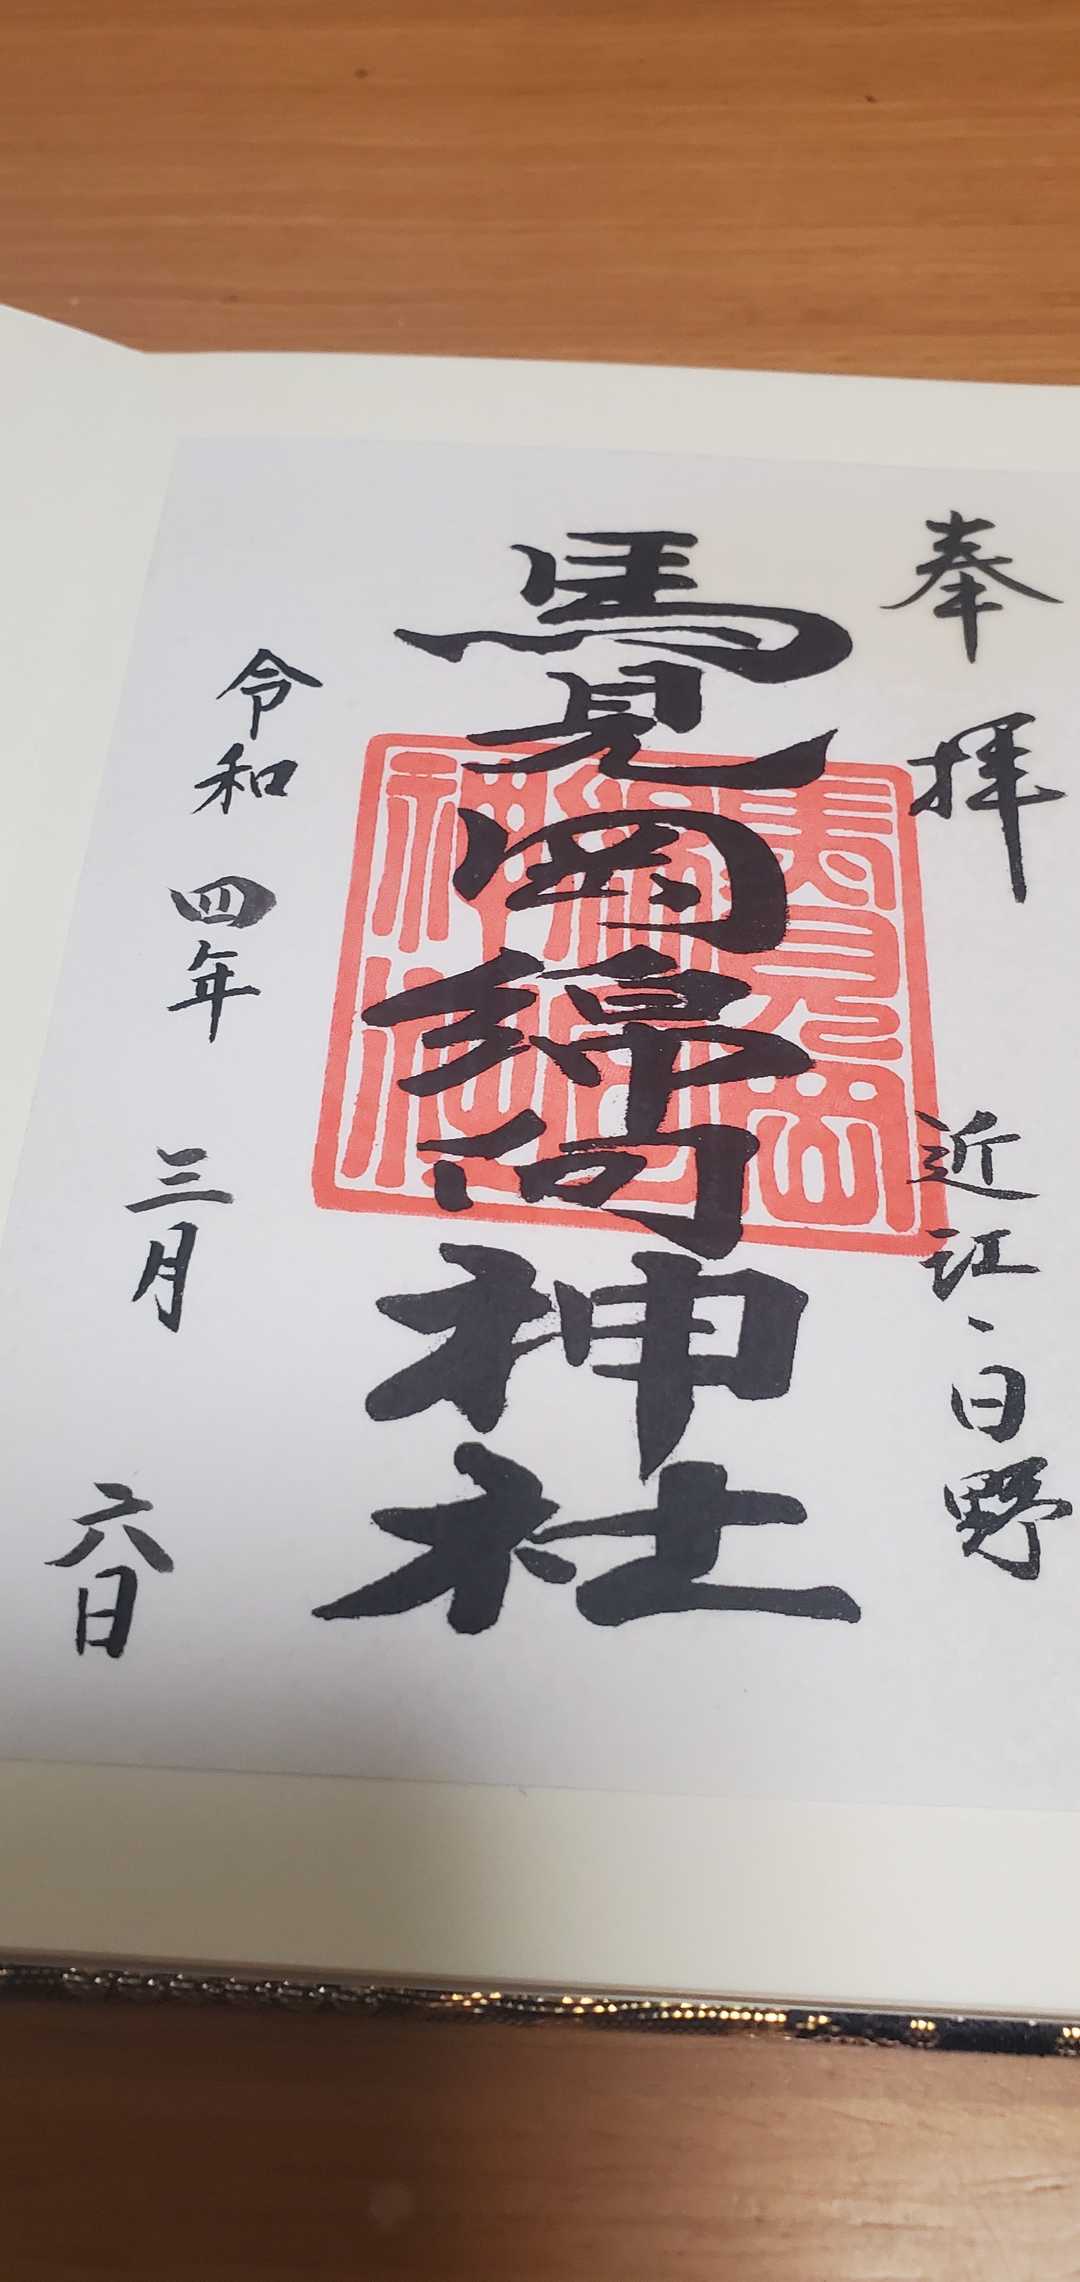 奉拝
近江、日野
馬見岡綿向神社
令和四年三月六日